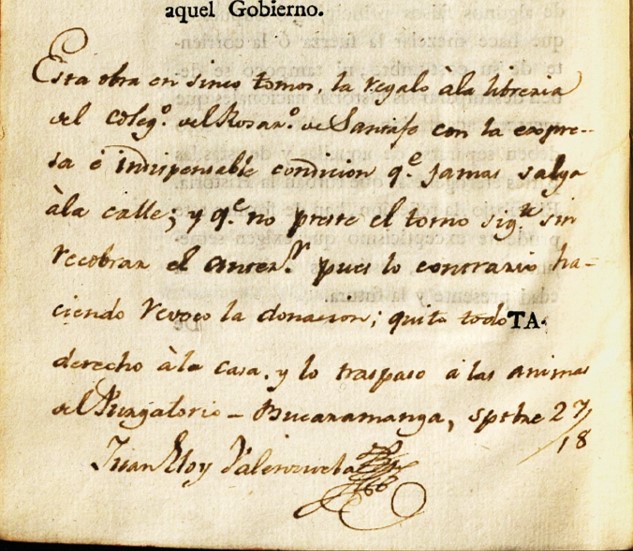 aquel Gobierno.
Esta obra en sinco tomos, la regalo ala libreria
del Coleg.º del Rosar.º de Santafe con la expre-
sa é indispensable condicion q.e jamas salga
àla calle; y q.e no preste el tomo sig.te sin
recobrar el anter.r pues lo contrario ha-
ciendo revoco la donacion; quito todo TA-
derecho àla casa. y lo traspaso á las animas
del Purgatorio - Bucaramanga, spbre 27/18
Juan Eloy Valenzuela